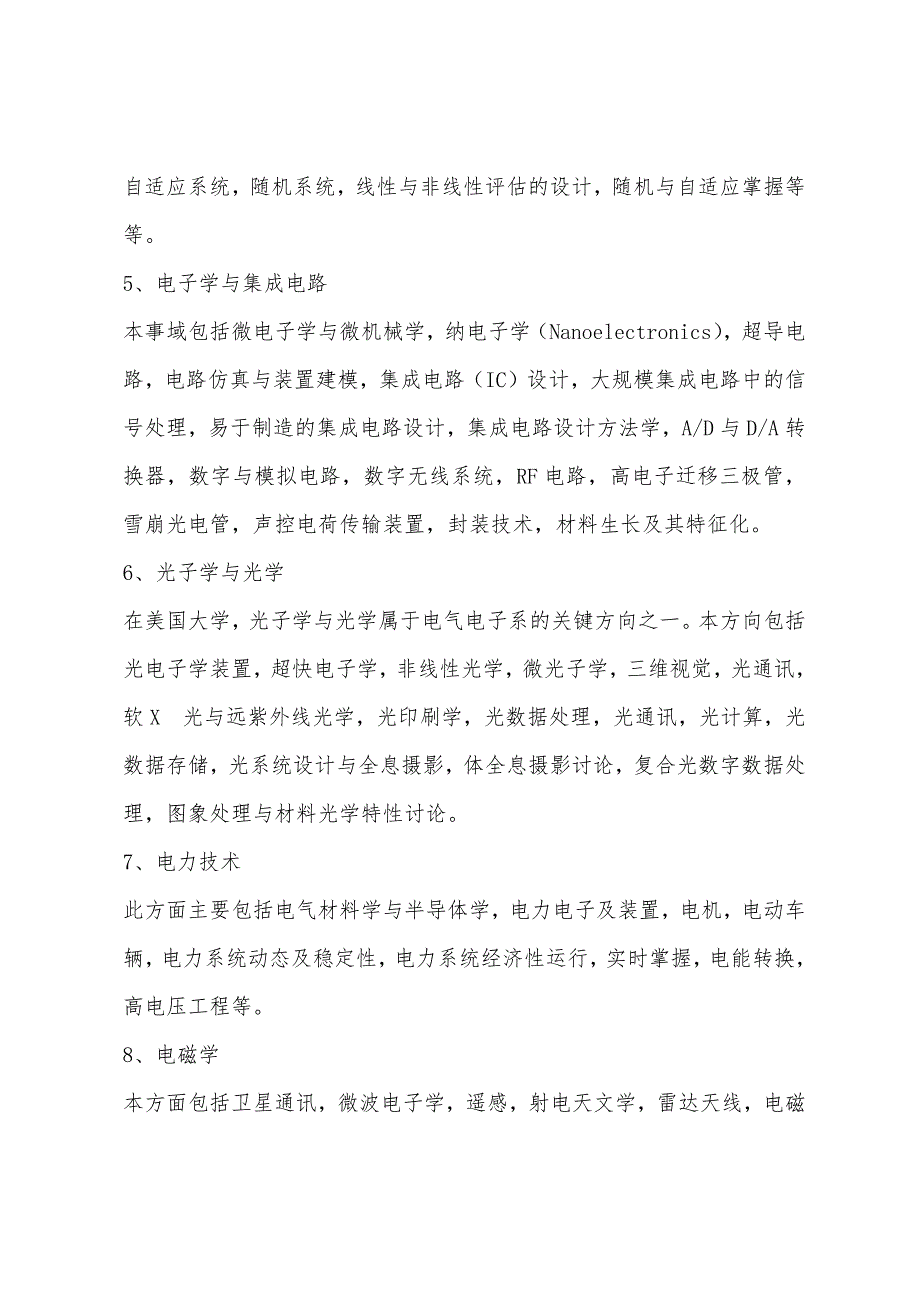 自适应系统，随机系统，线性与非线性评估的设计，随机与自适应掌握等
等。
5、电子学与集成电路
本事域包括微电子学与微机械学，纳电子学（Nanoelectronics），超导电
路，电路仿真与装置建模，集成电路（IC）设计，大规模集成电路中的信
号处理，易于制造的集成电路设计，集成电路设计方法学，A/D 与 D/A 转
换器，数字与模拟电路，数字无线系统，RF 电路，高电子迁移三极管，
雪崩光电管，声控电荷传输装置，封装技术，材料生长及其特征化。
6、光子学与光学
在美国大学，光子学与光学属于电气电子系的关键方向之一。本方向包括
光电子学装置，超快电子学，非线性光学，微光子学，三维视觉，光通讯，
软 X　光与远紫外线光学，光印刷学，光数据处理，光通讯，光计算，光
数据存储，光系统设计与全息摄影，体全息摄影讨论，复合光数字数据处
理，图象处理与材料光学特性讨论。
7、电力技术
此方面主要包括电气材料学与半导体学，电力电子及装置，电机，电动车
辆，电力系统动态及稳定性，电力系统经济性运行，实时掌握，电能转换，
高电压工程等。
8、电磁学
本方面包括卫星通讯，微波电子学，遥感，射电天文学，雷达天线，电磁